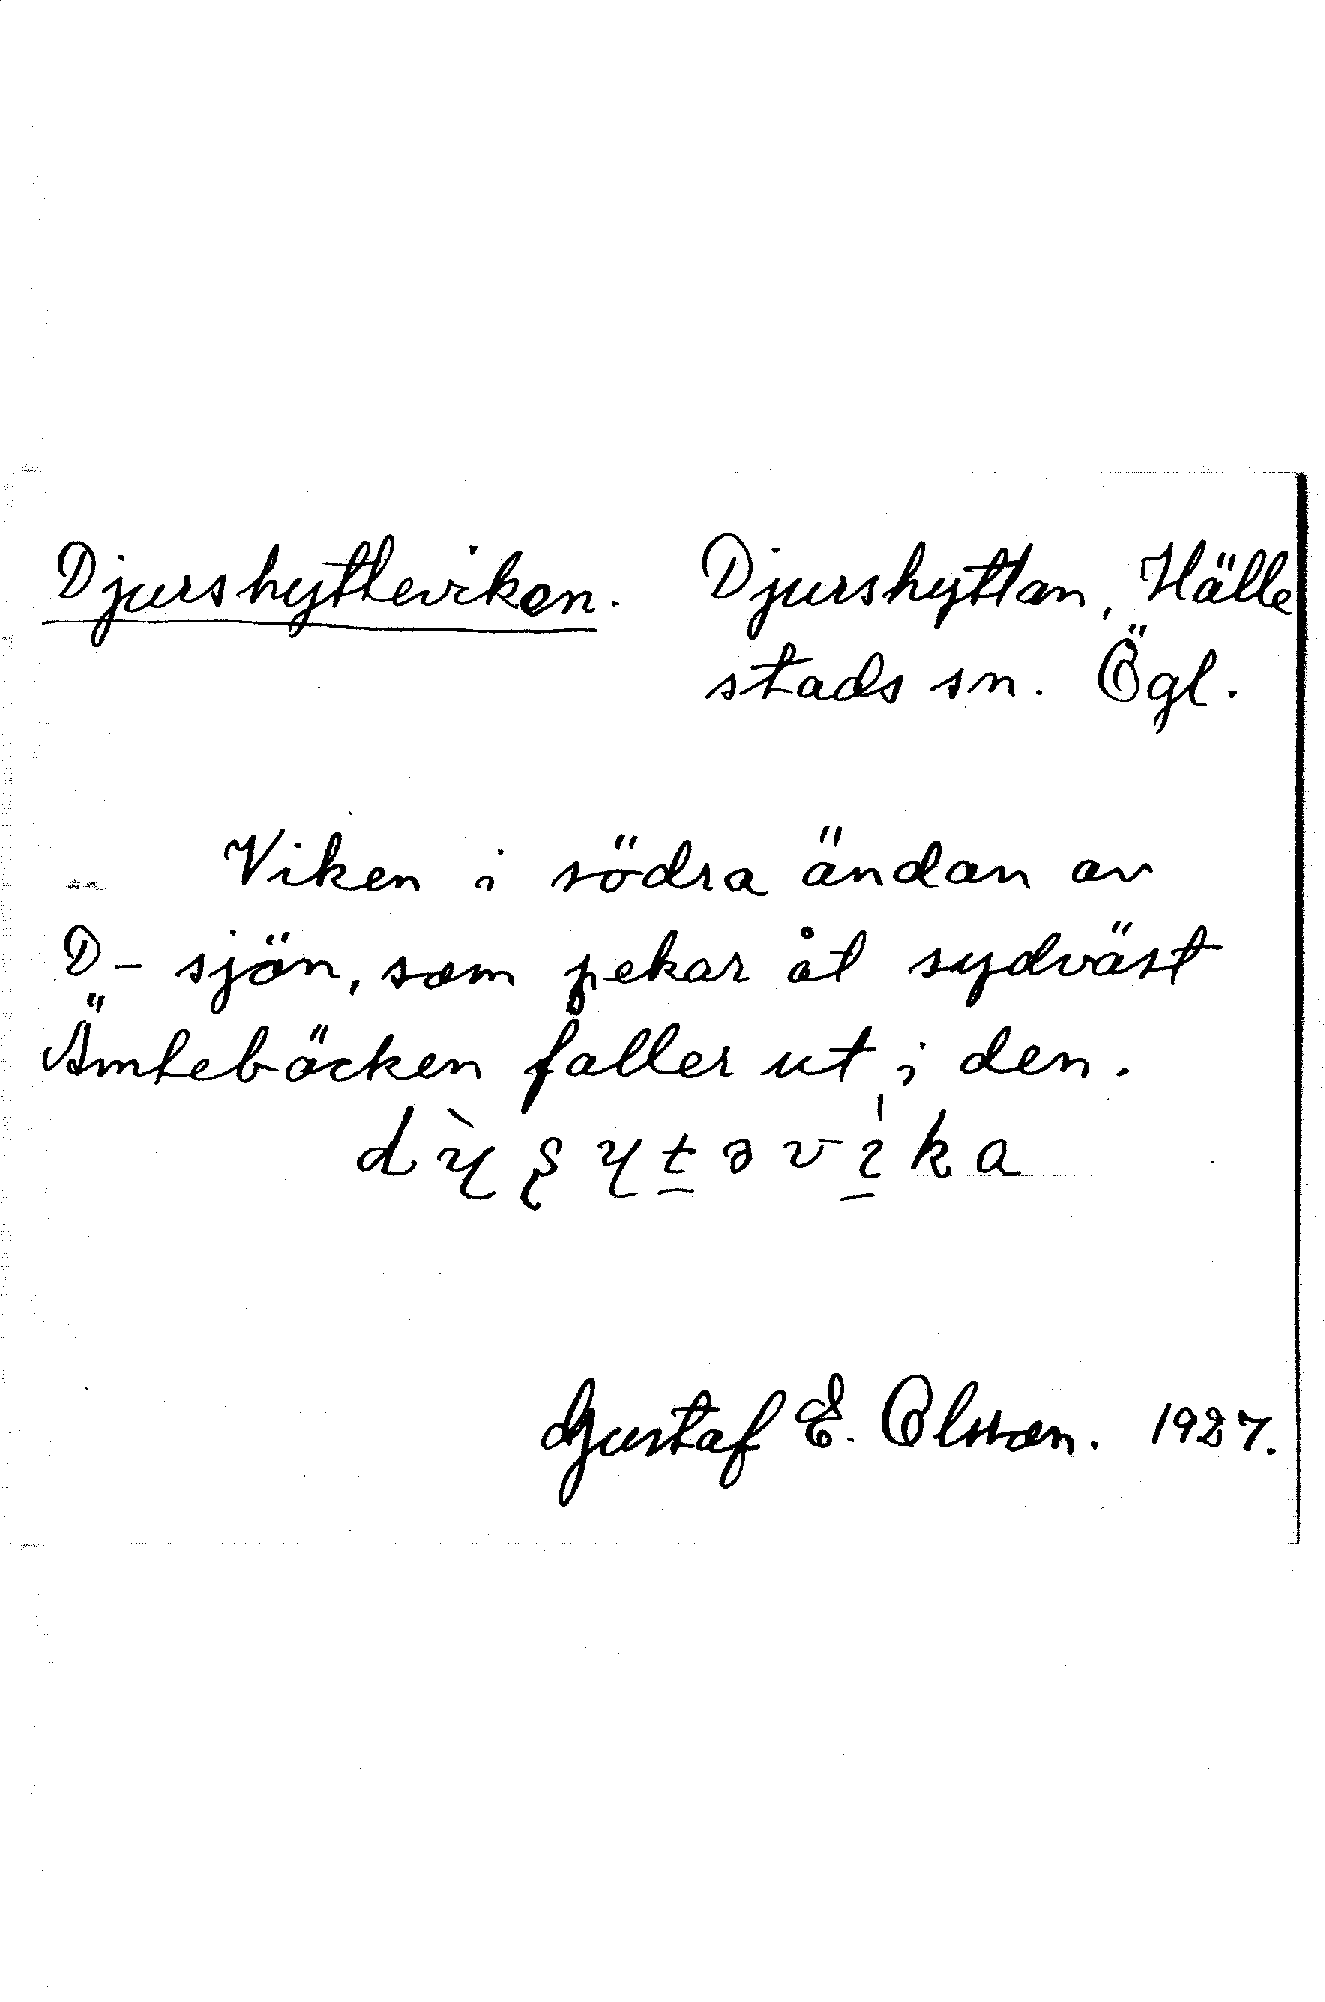 Djurshytteviken. Djurshyttan, Hälle
stads sn. Ögl.
Viken i södra ändan av
D- sjön, som pekar åt sydväst
Ämtebäcken faller ut i den.
Gustaf E. Olsson. 1927.